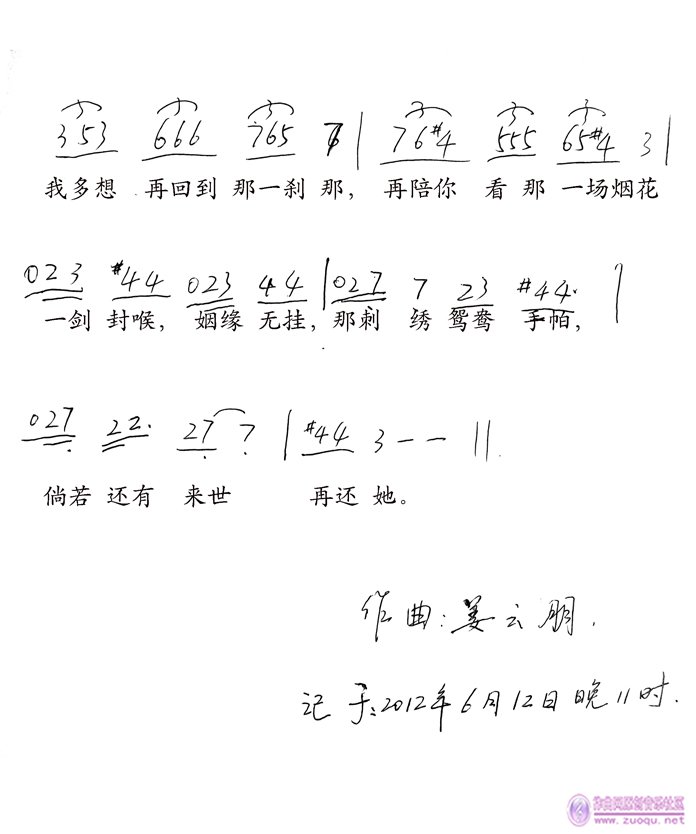 3 5 3 6 6 6 7 6 5 7 | 7 6 #4 5 5 5 6 5 #4 3 |
我多想 再回到 那一刹 那， 再陪你 看 那 一场烟花
0 2 3 #4 4 0 2 3 4 4 | 0 2 7 7 2 3 #4 4. |
一剑 封喉， 姻缘 无挂，那刺 绣 鸳鸯 手帕，
0 2 7 2 2. 2 7 7 | #4 4 3 — — ||
倘若 还有 来世 再还 她。
作曲：姜云朋.
记于：2012年6月12日晚11时.
作曲网原创音乐社区
www.zuoqu.net